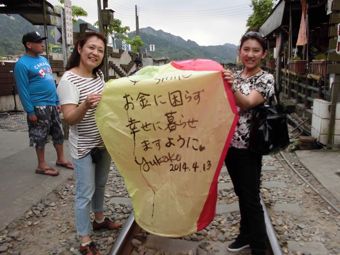 お金に困らず
幸せに暮らせ
ますように。
Yukako
2014.4.13